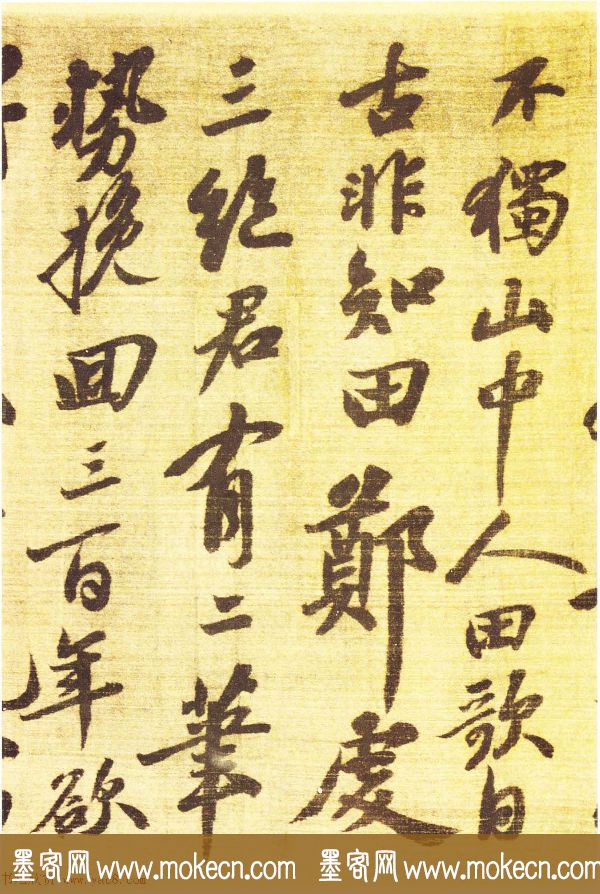 不獨山中人田歌自
古非知田鄭虔
三絕君有二筆
勢挽回三百年欲
墨客网 www.mokecn.com 墨客网 www.mokecn.com